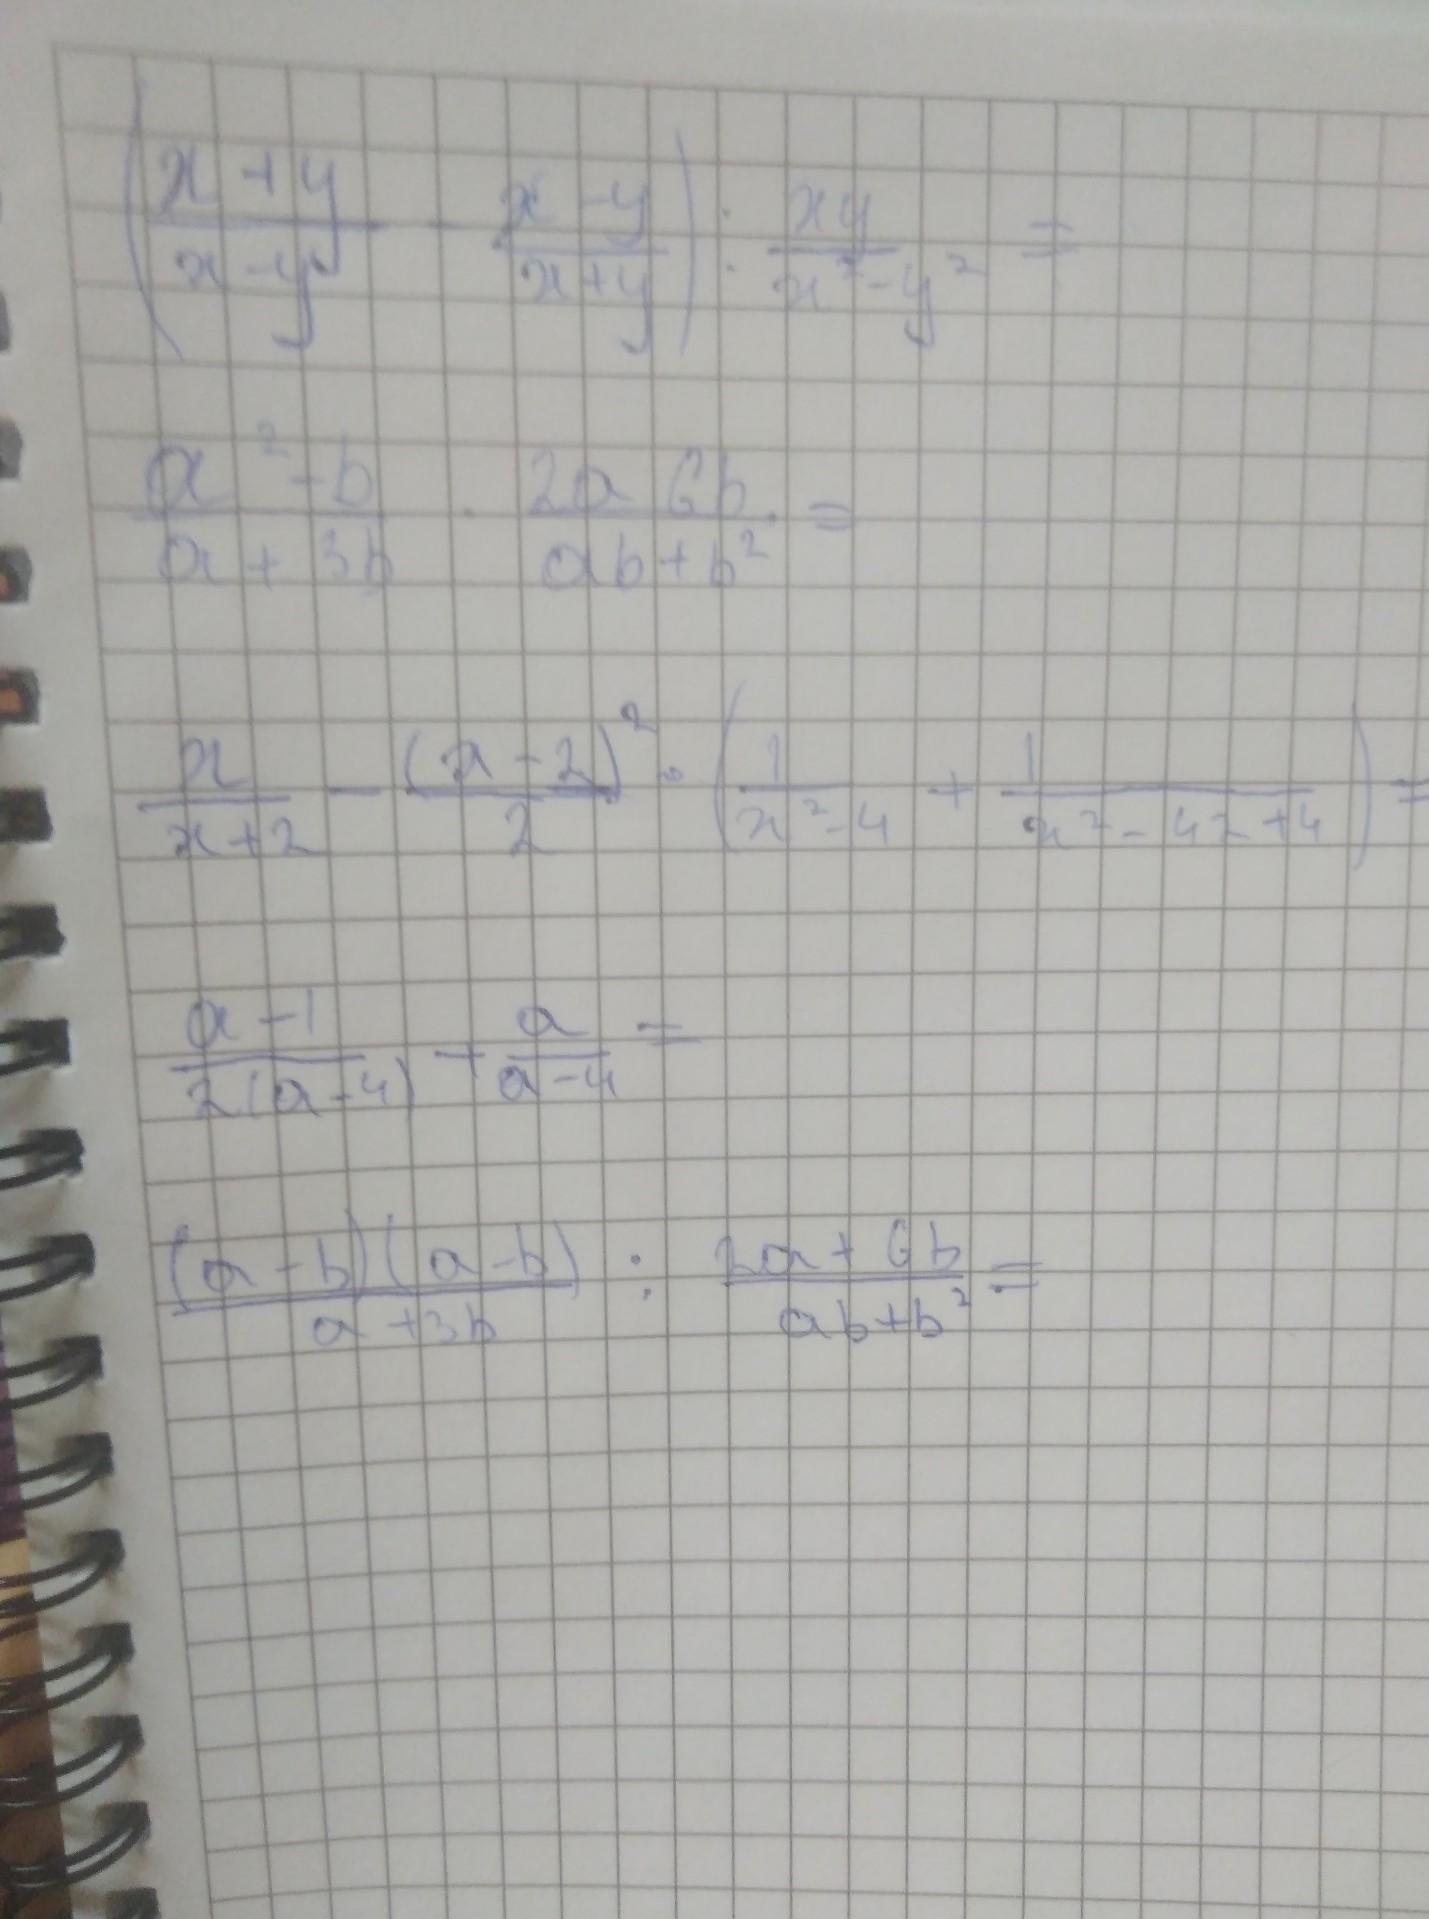 (x+y/x-y - x-y/x+y) : xy/x²-y² =
a²-b/a+3b · 2a 6b/ab+b² =
x/x+2 - (x-2)²/2 · (1/x²-4 + 1/x²-4x+4) =
a-1/2(a-4) + a/a-4 =
(a-b)(a-b)/a+3b : 2a+6b/ab+b² =